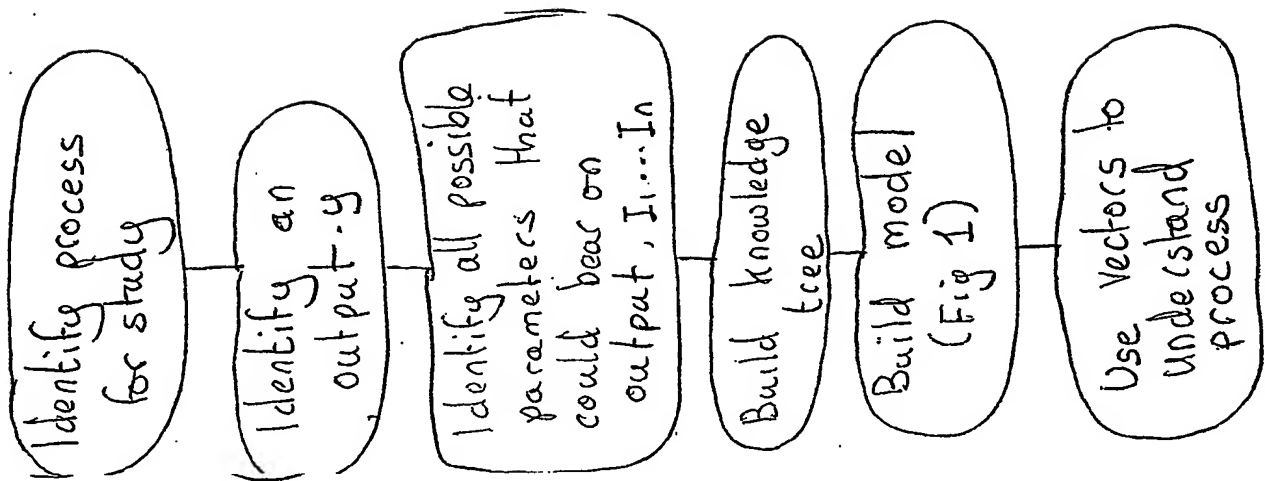 Identify process
for study
Identify an
output.y
Identify all possible
parameters that
could bear on
output, I1....In
Build knowledge
tree
Build model
(Fig 1)
Use Vectors to
understand
process